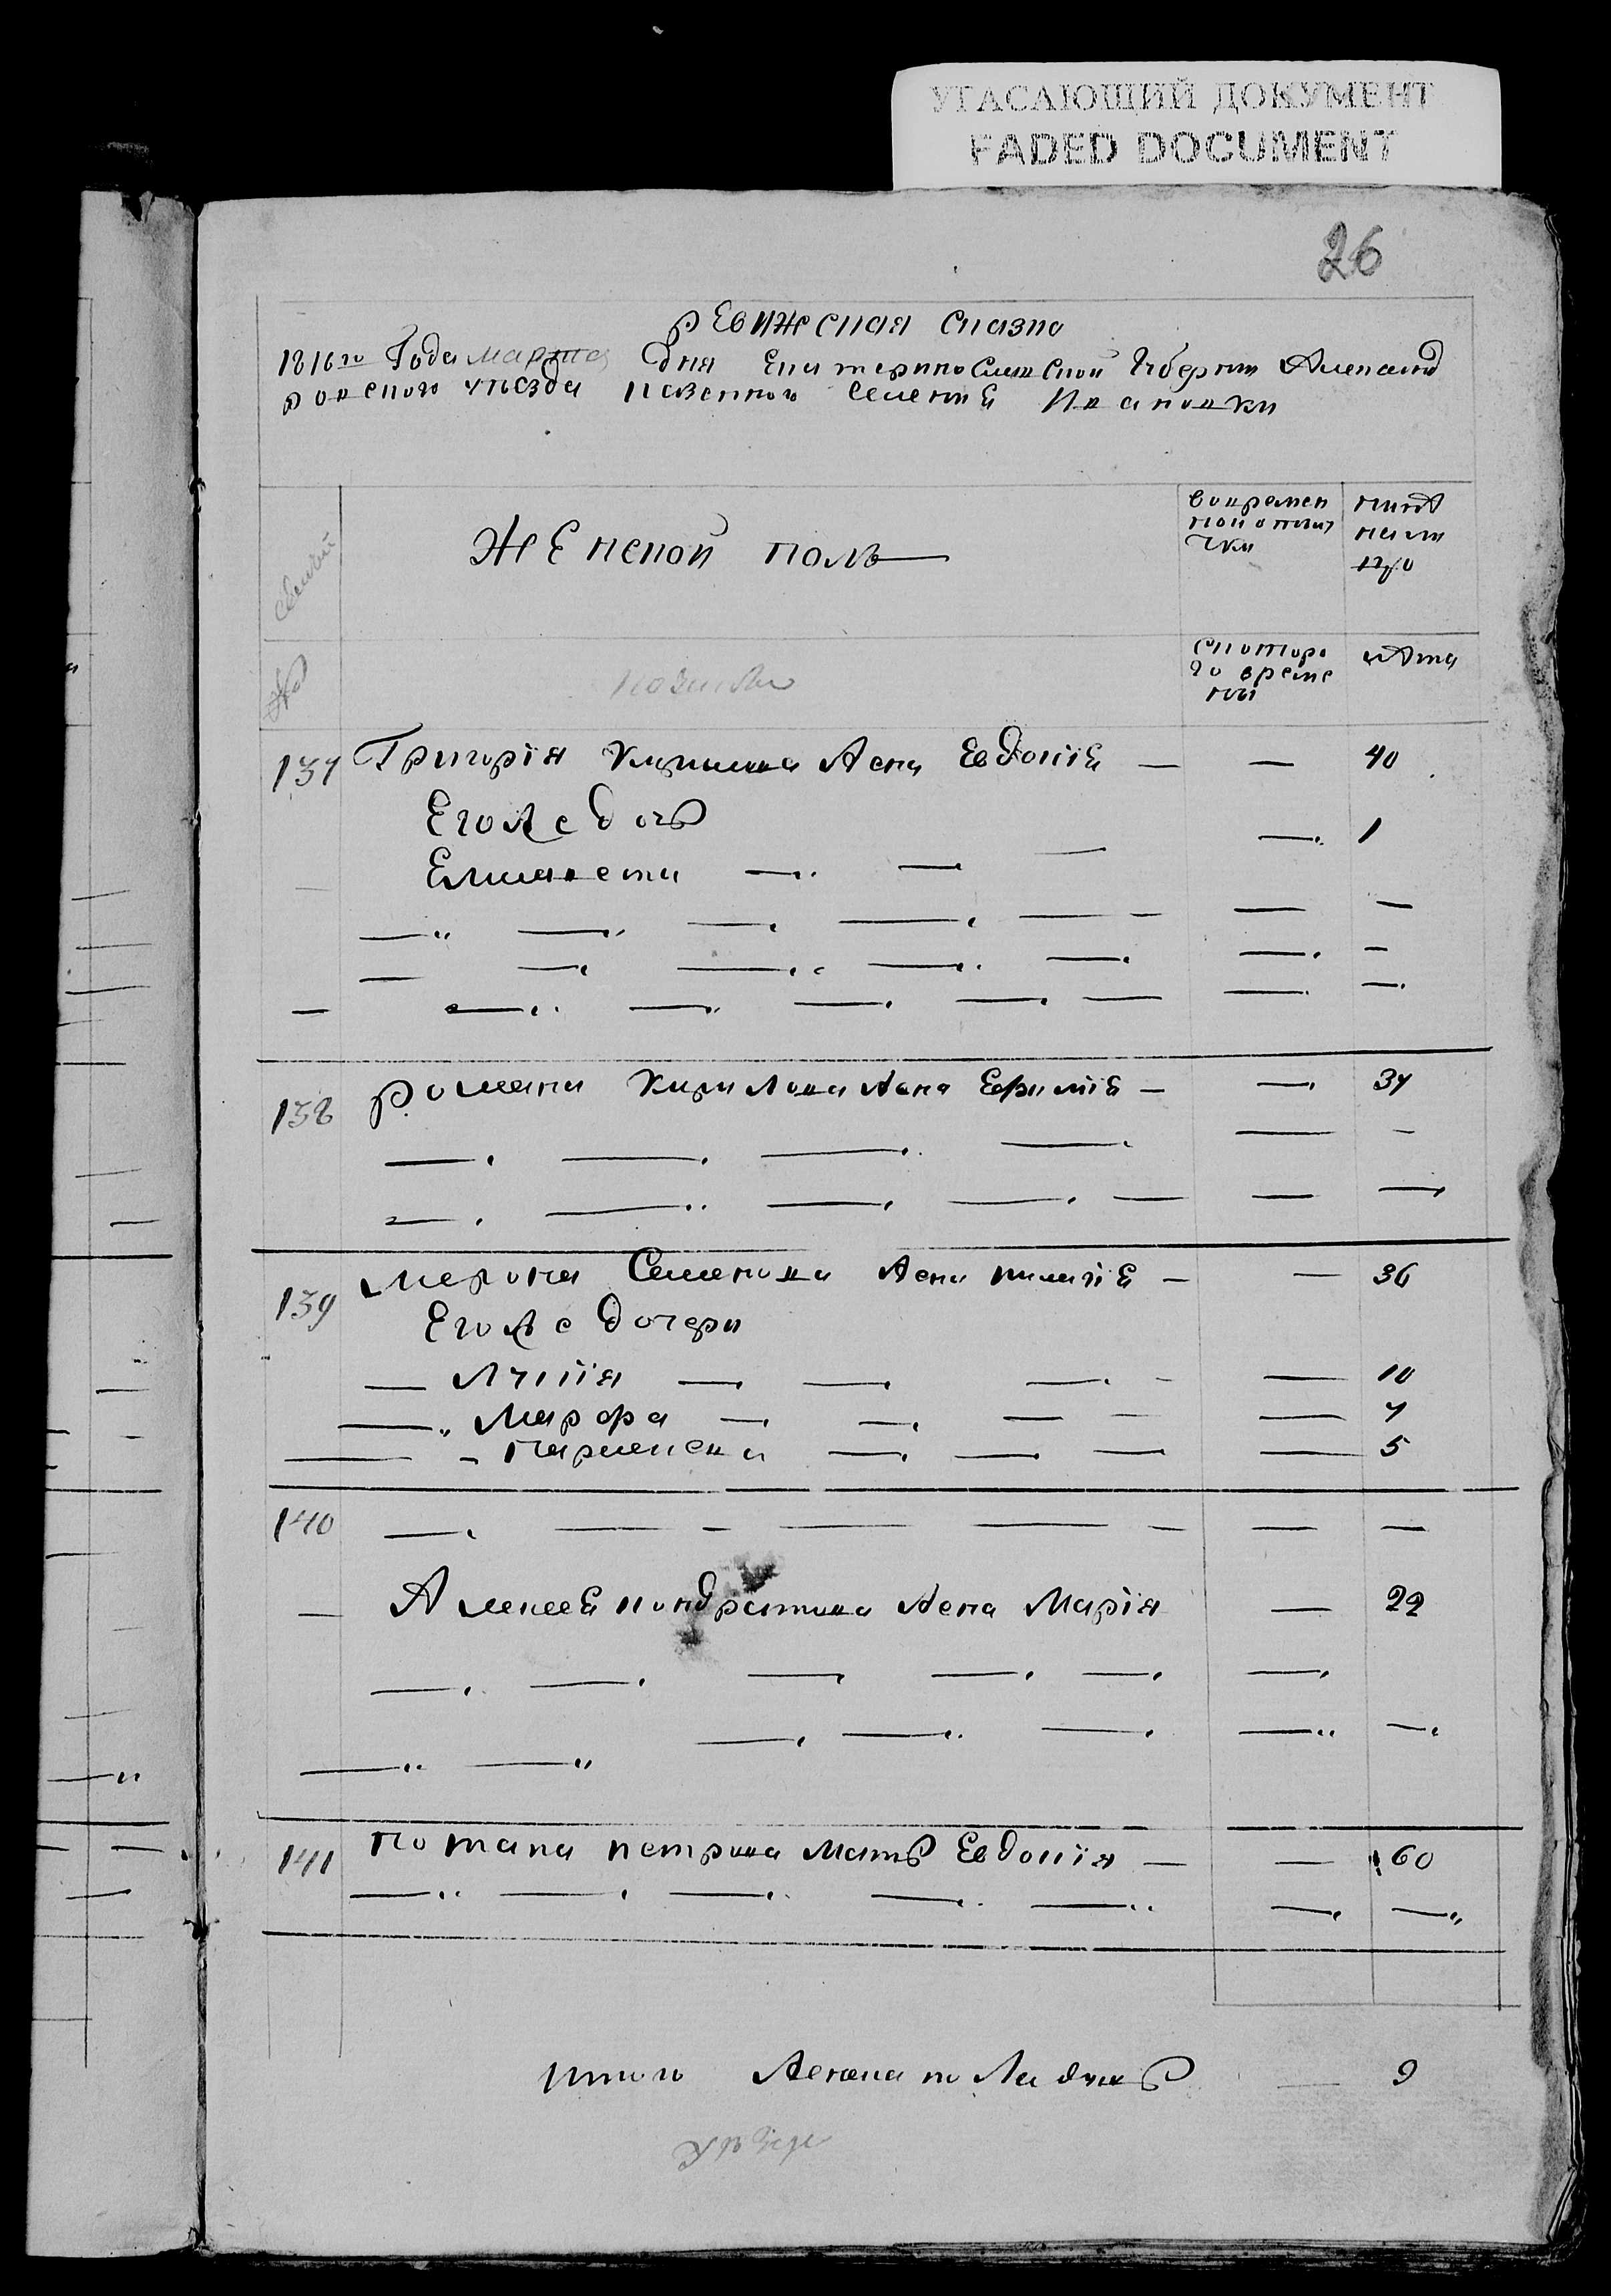 УГАСАЮЩИЙ ДОКУМЕНТ
FADED DOCUMENT
26
ревижская сказка
1816го Года марта дня Екатеринославской Губернии Александ
ровского уезда казенного селения Ивановки
женской пол
вовремен
ной отлуч
ки
ныне
налицо
с которо
го време
ни
лета
137 Григория Кирилова жена Евдокия — — 40
Его же дочь
Елисавета — — — — 1
138 романа Кирилова жена Ефимия — — 37
139 Мирона Семенова жена — — 36
Его же дочери
— Лукия — — — — — 10
— Марфа — — — — — 7
— — — — — 5
140 — — — — — — —
— Алексея Кондратова жена Мария — 22
141 потапа петрова мать Евдокия — — 60
итого женска полу душ — 9